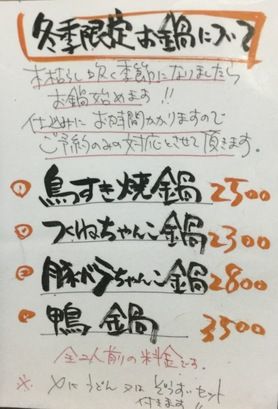 冬季限定お鍋について
木枯らし吹く季節になりましたら
お鍋始めます!!
仕込みにお時間かかりますので
ご予約のみの対応とさせて頂きます。
① 鳥すき焼鍋 2500
・ つくねちゃんこ鍋 2300
・ 豚バラちゃんこ鍋 2800
・ 鴨鍋 3500
全2人前の料金です。
※ 〆にうどん又はぞうすいセット
付きます!!